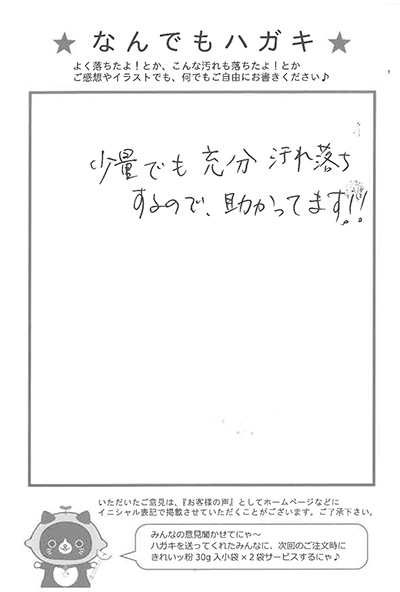 ★ なんでもハガキ ★
よく落ちたよ！とか、こんな汚れも落ちたよ！とか
ご感想やイラストでも、何でもご自由にお書きください♪
少量でも 充分 汚れ落ち
するので、助かってます!!
いただいたご意見は、『お客様の声』としてホームページなどに
イニシャル表記で掲載させていただくことがございます。ご了承下さい。
みんなの意見聞かせてにゃ〜
ハガキを送ってくれたみんなに、次回のご注文時に
きれいッ粉 30g 入小袋 × 2 袋サービスするにゃ♪